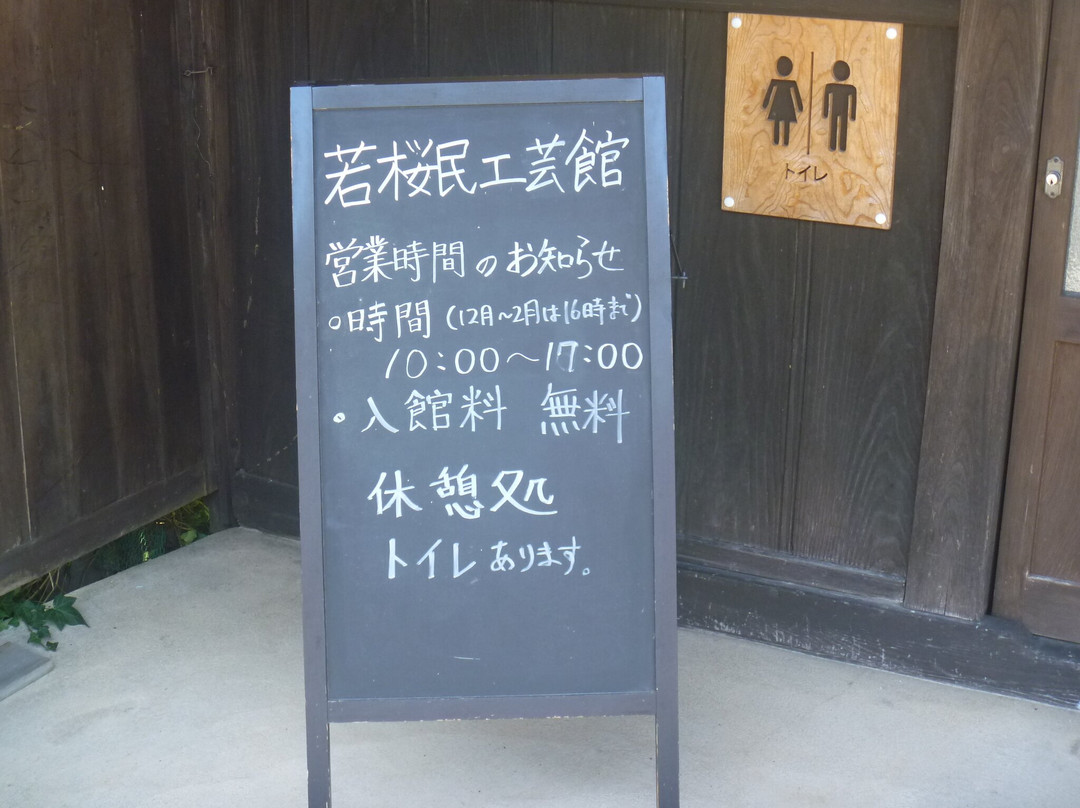 若桜民工芸館
営業時間のお知らせ
○時間(12月～2月は16時まで)
10:00～17:00
・入館料 無料
休憩処
トイレあります。
トイレ